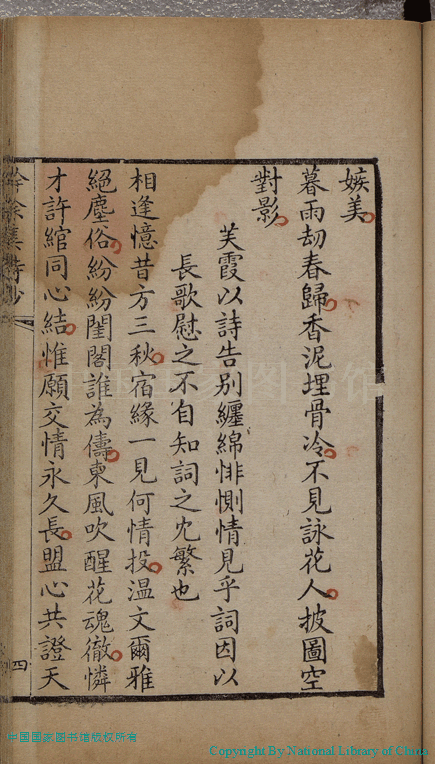 嫉美
暮雨刼春歸香泥埋骨冷不見詠花人披圖空
對影
芙霞以詩告别纏綿悱惻情見乎詞因以
長歌慰之不自知詞之冗繁也
相逢憶昔方三秋宿緣一見何情投温文爾雅
絕塵俗紛紛閨閣誰為儔東風吹醒花魂徹憐
才許綰同心結惟願交情永久長盟心共證天
餘集詩鈔
四
中国国家图书馆
中国国家图书馆版权所有
Copyright By National Library of China